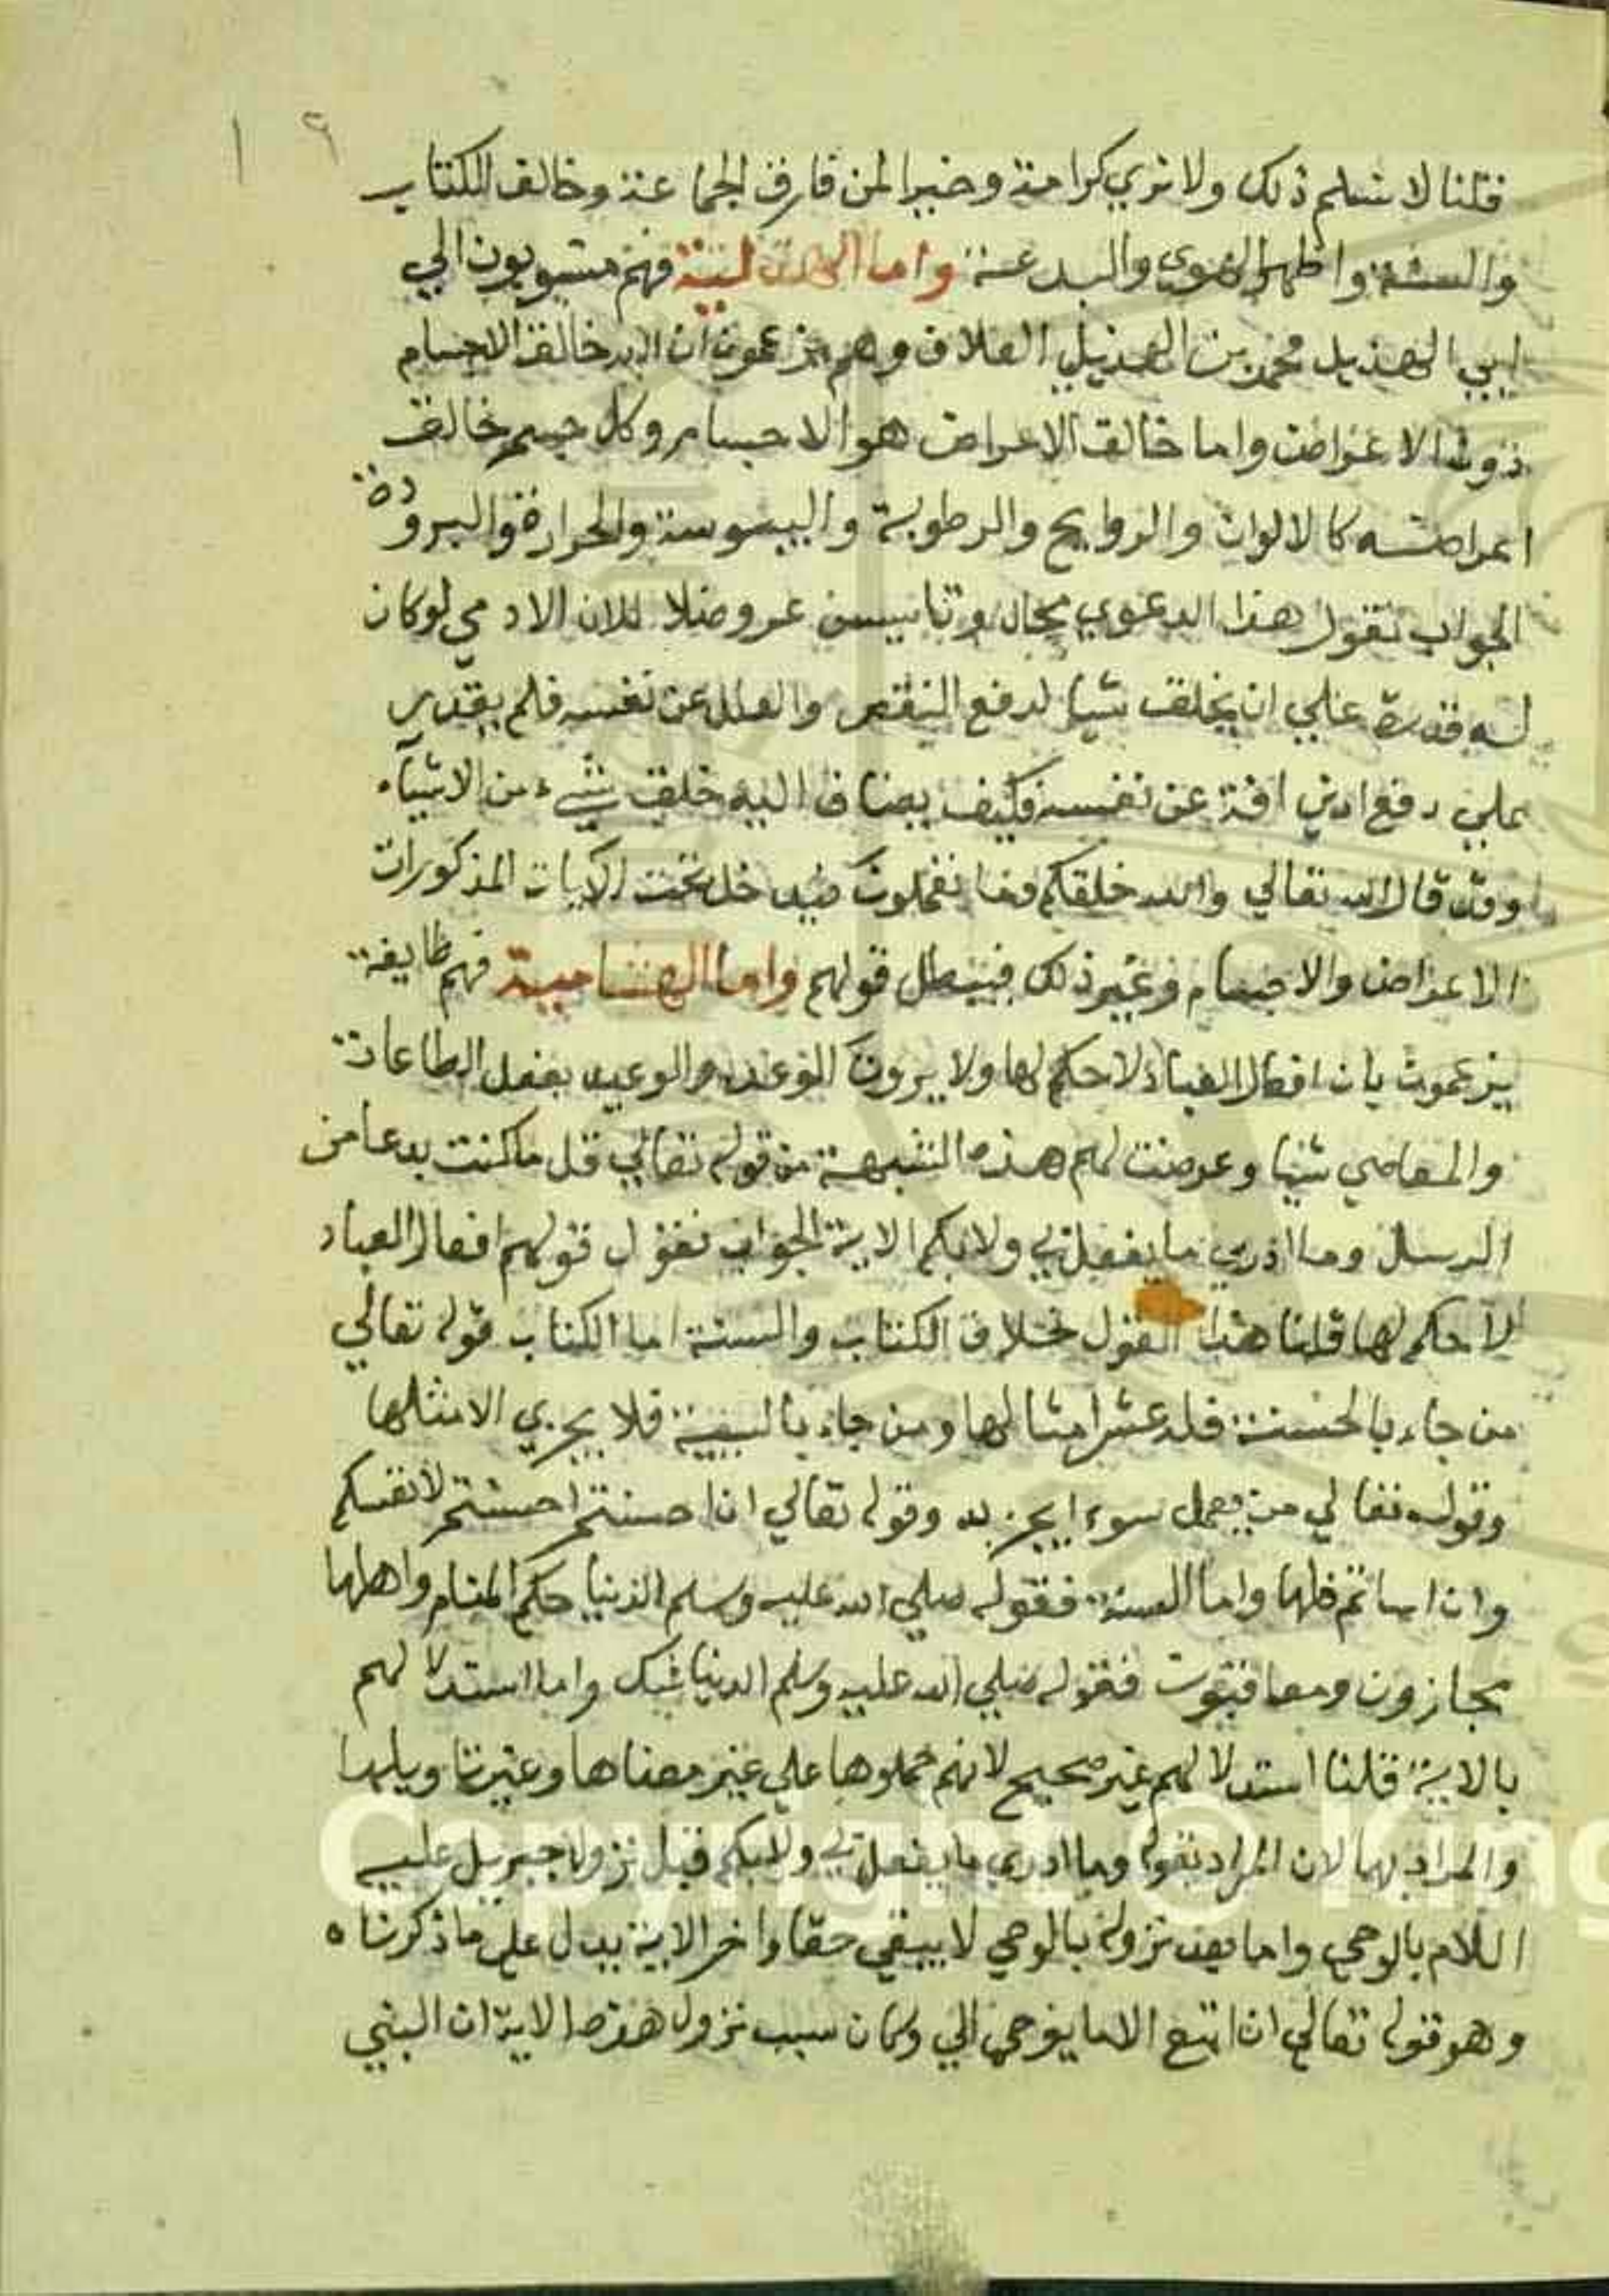 ١٦
فقلنا لا نسلم ذلك ولا نري كرامة وخيرا لمن فارق الجماعة وخالف الكتاب
والسنة واظهر الهوى والبدعة واما الهذلية فهم منسوبون الي
ابي الهذيل محمد بن الهذيل العلاف وهم يزعمون ان الله خالق الاجسام
دون الاعراض واما خالق الاعراض هو الاجسام وكل جسم خالق
اعراضه كالالوان والروايح والرطوبة واليبوسة والحرارة والبرودة
الجواب نقول هذا الدعوي محال لان الادمي لو كان
له قدرة علي ان يخلق شيا لدفع النقص والعلل عن نفسه فلم يقدر
علي دفع ادني افة عن نفسه فكيف يضاف اليه خلق شيء من الاشياء
وقد قال الله تعالي والله خلقكم وما تعملون فيدخل تحت الايات المذكورات
الاعراض والاجسام وغير ذلك فيبطل قولهم واما الهشامية فهم طايفة
يزعمون بان افعال العباد لا حكم لها ولا يرون الوعد والوعيد بفعل الطاعات
والمعاصي شيا وعرضت لهم هذه الشبهة من قوله تعالي قل ما كنت بدعا من
الرسل وما ادري ما يفعل بي ولا بكم الاية الجواب نقول قولهم افعال العباد
لا حكم لها قلنا هذا القول بخلاف الكتاب والسنة اما الكتاب قوله تعالي
من جاء بالحسنة فله عشر امثالها ومن جاء بالسيية فلا يجزي الا مثلها
وقوله تعالي من يعمل سوءا يجز به وقوله تعالي ان احسنتم احسنتم لانفسكم
وان اساتم فلها واما السنة فقوله صلي الله عليه وسلم الدنيا حكم المنام واهلها
مجازون ومعاقبون فقوله صلي الله عليه وسلم الدنيا شبك واما استدلالهم
بالاية قلنا استدلالهم غير صحيح لانهم حملوها علي غير معناها وغير تاويلها
والمراد بها لان المراد بقوله وما ادري ما يفعل بي ولا بكم قبل نزول جبريل عليه
اللام بالوحي واما بعد نزوله بالوحي لا يبقي حقا واخر الاية يدل علي ما ذكرناه
وهو قوله تعالي ان اتبع الا ما يوحي الي وكان سبب نزول هذه الاية ان النبي
Copyright © King